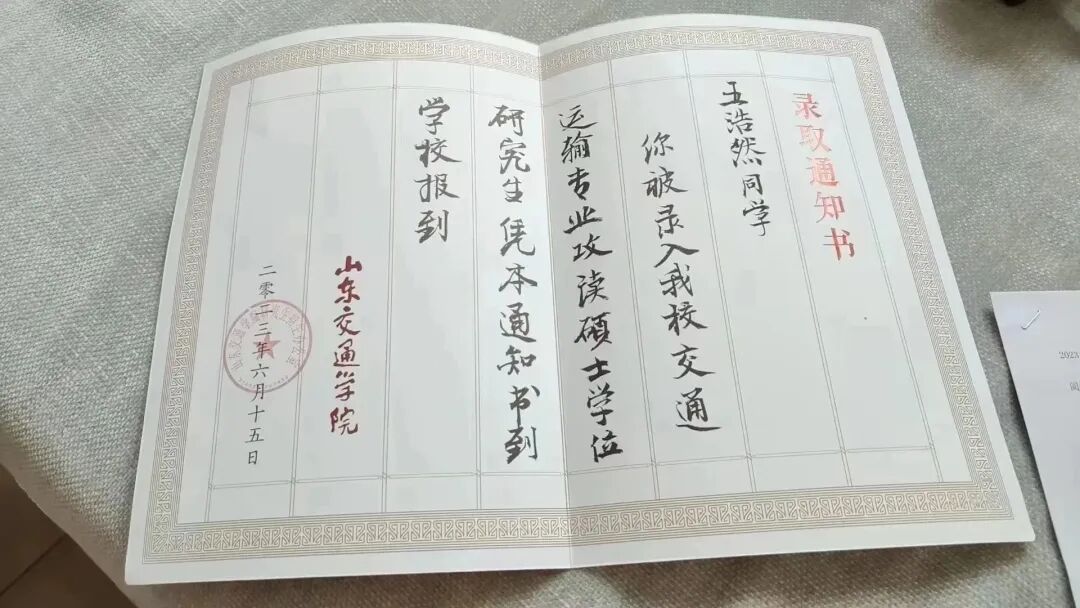 录取通知书
王浩然同学
你被录入我校交通
运输专业攻读硕士学位
研究生凭本通知书到
学校报到
山东交通学院
二零二三年六月十五日
2023